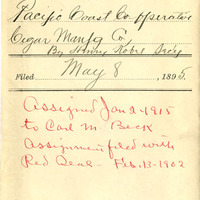 Pacific Coast Co-operative
Cigar Manfg Co.
By Henry Secy
Filed May 8, 1895.
Assigned Jan 2-1915
to Carl M. Beck
Assignment filed with
Red Seal - Feb. 13-1902